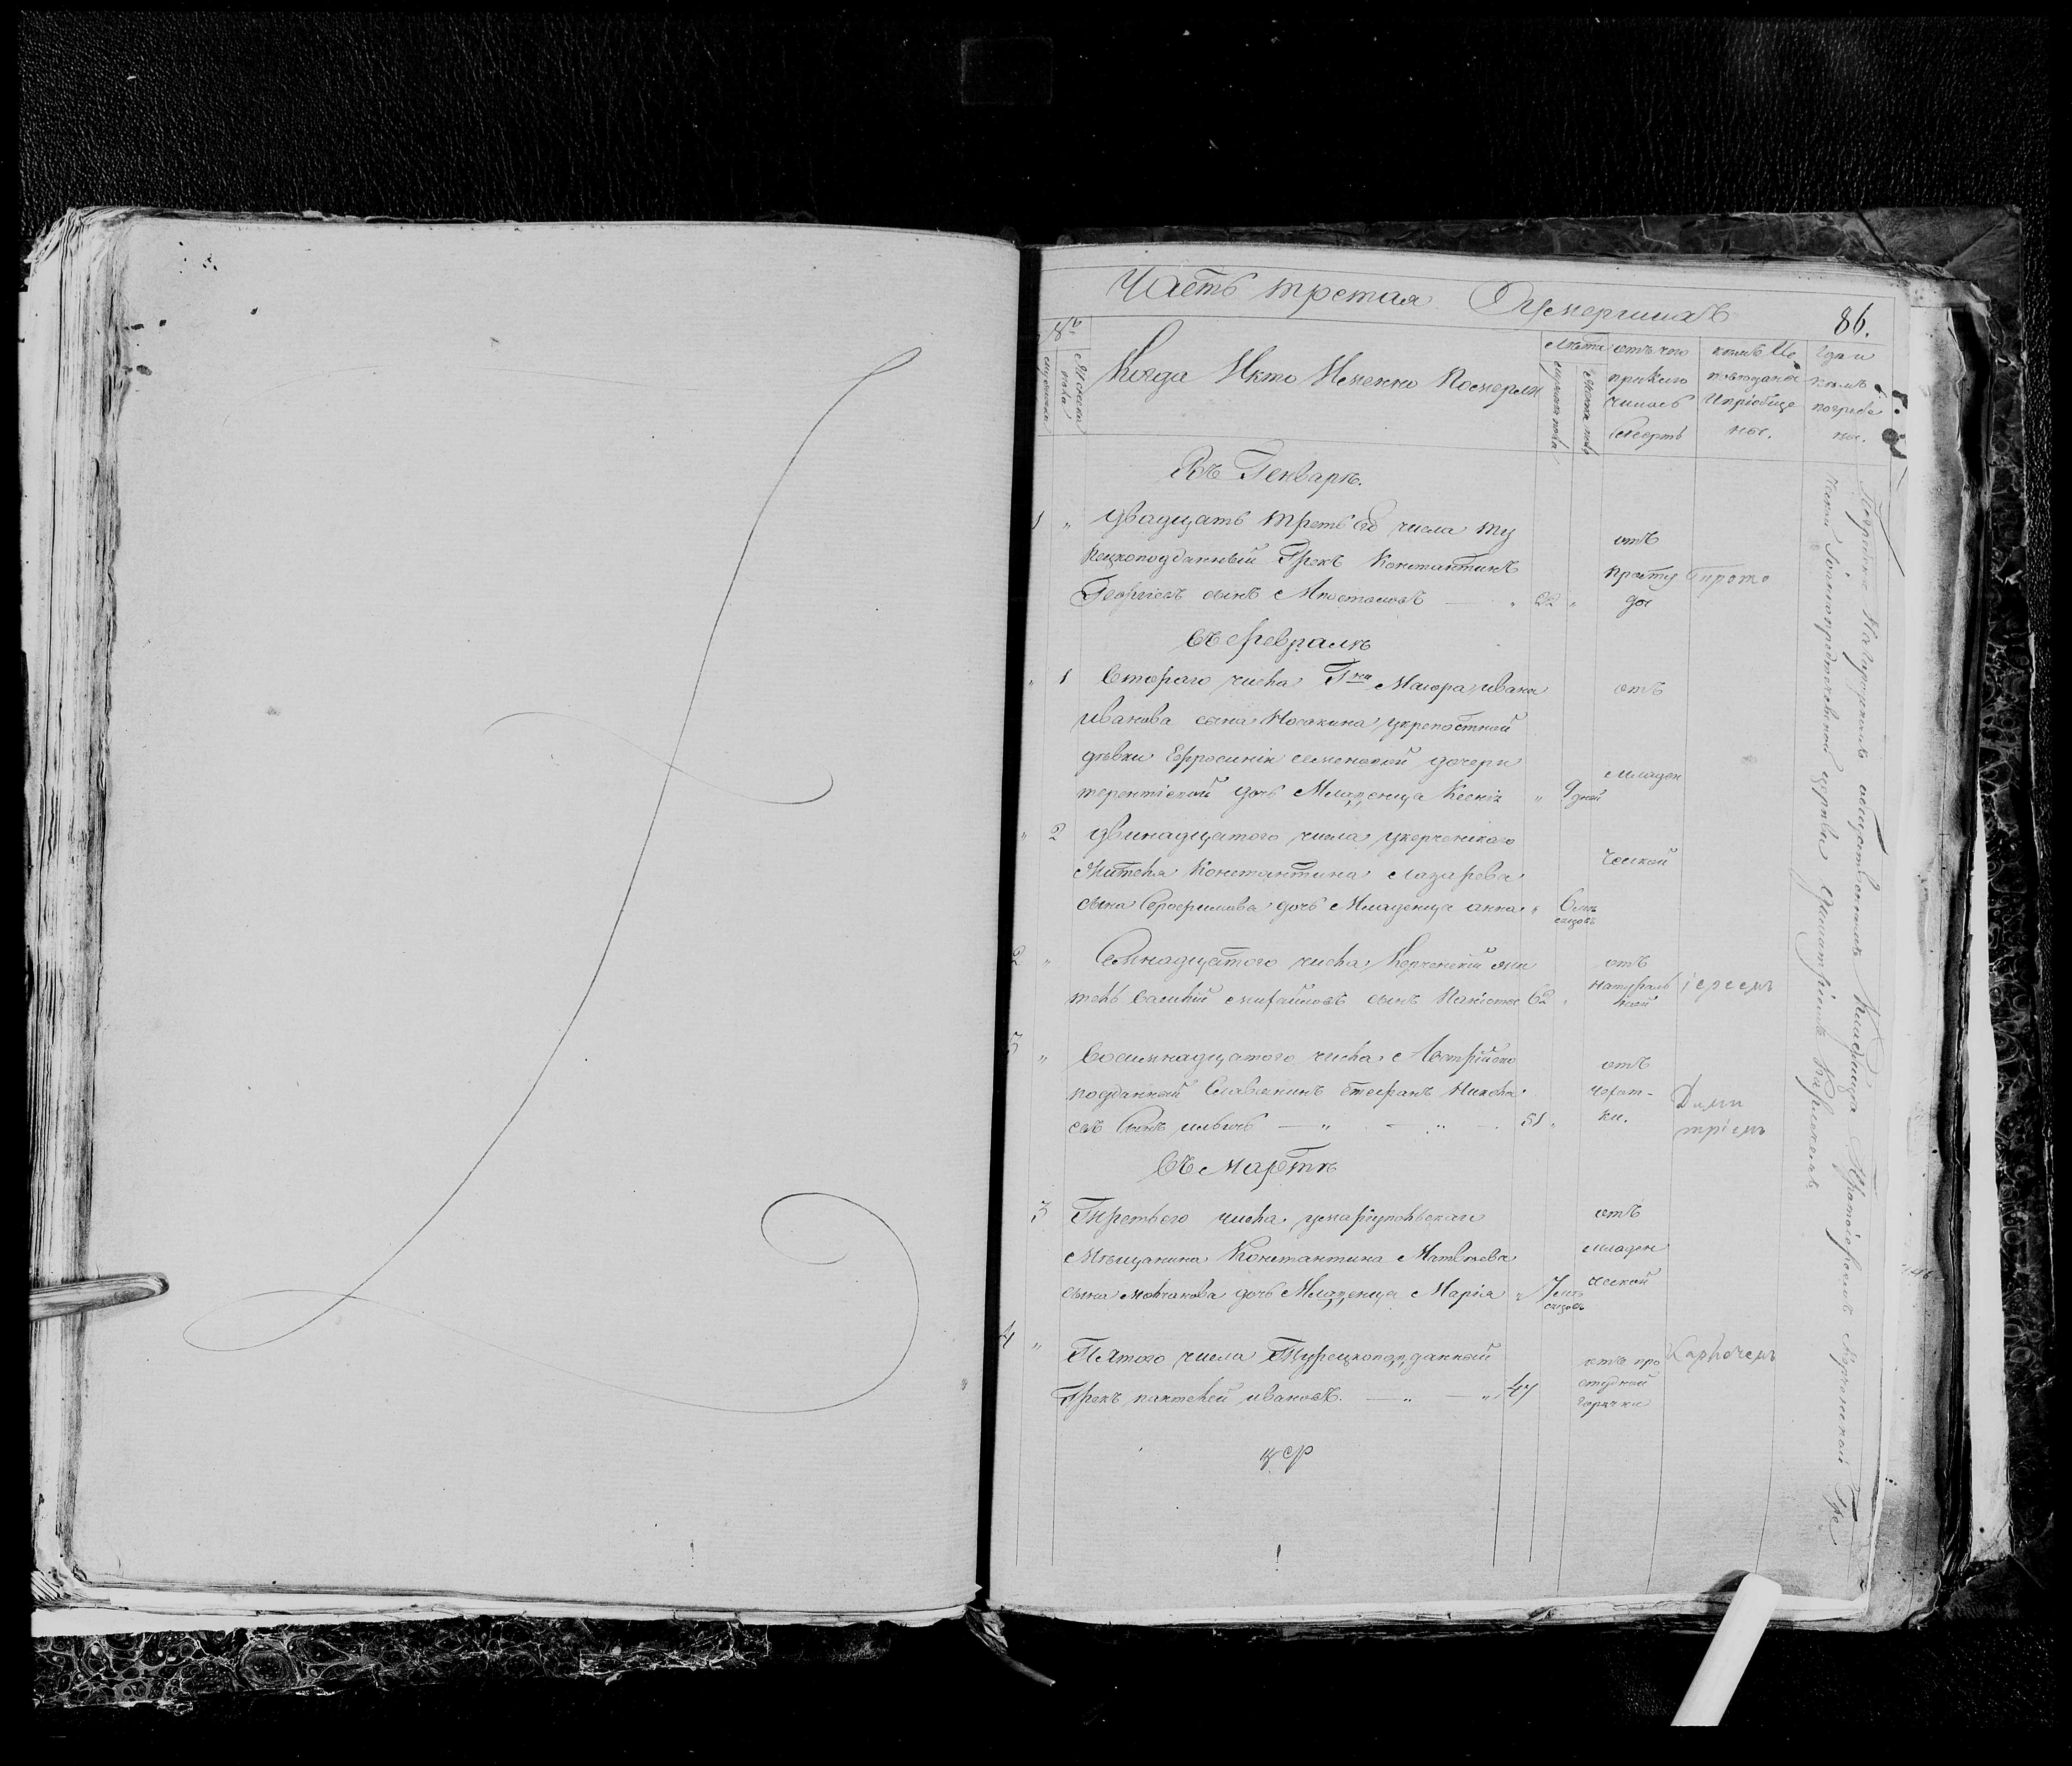 Часть третая О умершихъ
86.
№ъ
Мужеска
Женска
пола
Когда И кто Именно Померли
Лѣта
мужеска пола
женска пола
отъ чего
приклю
чилась
смерть
кемъ Ис
повѣданы
И пріобще
ны.
Где и
кемъ
погребе
ны.
Въ Генварѣ.
1 " двадцать третьего числа ту
рецкоподданный Грекъ Константинъ
Георгіевъ сынъ " 22 "
отъ
простуды
Прото
въ Февралѣ
" 1 Втораго числа Г-на Маіора Ивана
Иванова сына Носакина у крепостной
дѣвки Ефросиніи Семеновой дочери
терентіевой дочь Младенца Ксенія " 9 дней
отъ
младен
ческой
" 2 двинадцатого числа у керченскаго
Жителя Константина Лазарева
сына Серафимова дочь Младенца анна " 6 мѣ
сяцовъ
2 " Семнадцатого числа Керченскій жи
тель Василій Михайловъ сынъ 62 "
отъ
натураль
ной
іереемъ
3 " Восимнадцатого числа Австрійско
подданный Славянинъ Стефанъ Никола
евъ Сынъ ильичъ — " — " 51 "
отъ
чехот-
ки.
Дими
тріемъ
въ Мартѣ
3 Третьего числа у маріупольскаго
Мѣщанина Константина Матвѣева
сына Молчанова дочь Младенца Марія " 7 мѣ
сяцовъ
отъ
младен
ческой
4 " Пятого числа Турецкоподданный
Грекъ пантелей ивановъ. — " — " 47
отъ про
студной
горячки
Погребены На городскомъ кладбище Протоіереемъ Керченской Гре
ческой Іоаннопредтечевской церкви Димитріемъ